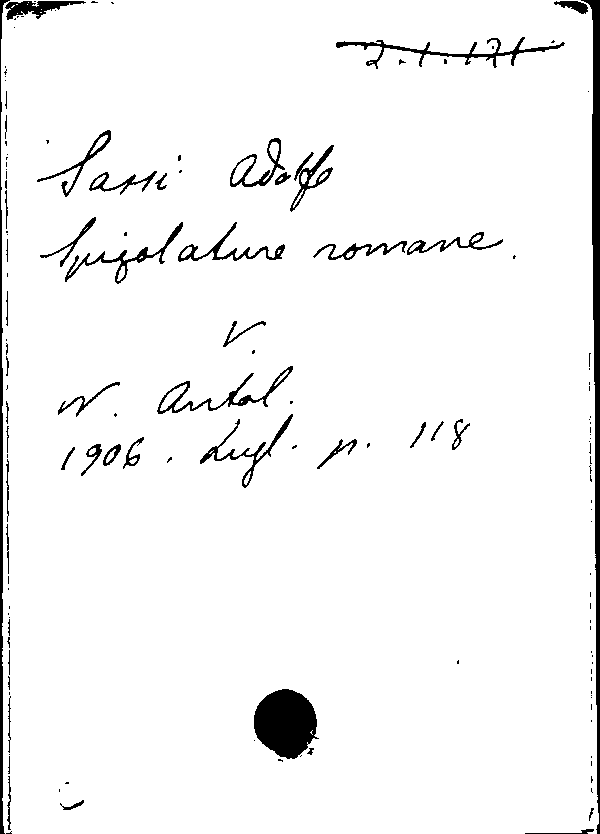 2.1.171
Sassi Adolfo
Spigolature romane.
V.
N. Antol.
1906. Lugl. p. 118